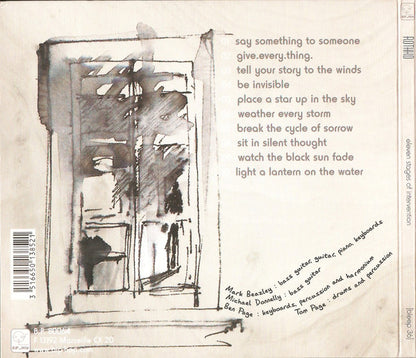 say something to someone
give.every.thing.
tell your story to the winds
be invisible
place a star up in the sky
weather every storm
break the cycle of sorrow
sit in silent thought
watch the black sun fade
light a lantern on the water
Mark Beazley : bass guitar, guitar, piano, keyboards
Michael Donnelly : bass guitar
Ben Page : keyboards, percussion and harmonium
Tom Page : drums and percussion
3 516650 138521
B.P. 80064
F 13192 Marseille CX 20
eleven stages of intervention